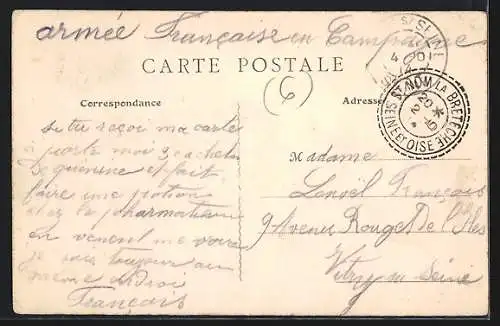 armée Française en Campagne
CARTE POSTALE
(6)
Correspondance
Adresse
ST NOM LA BRETECHE
SEINE ET OISE
si tu reçoi ma carte
aporte moi 3 cachets
de quenine et fait
faire une potion
chez le pharmatien
en venent me voire
je suis toujour au
meme endroi
François
Madame
Lenoël François
9 Avenue Rouget De l'Isle
Vitry sur Seine